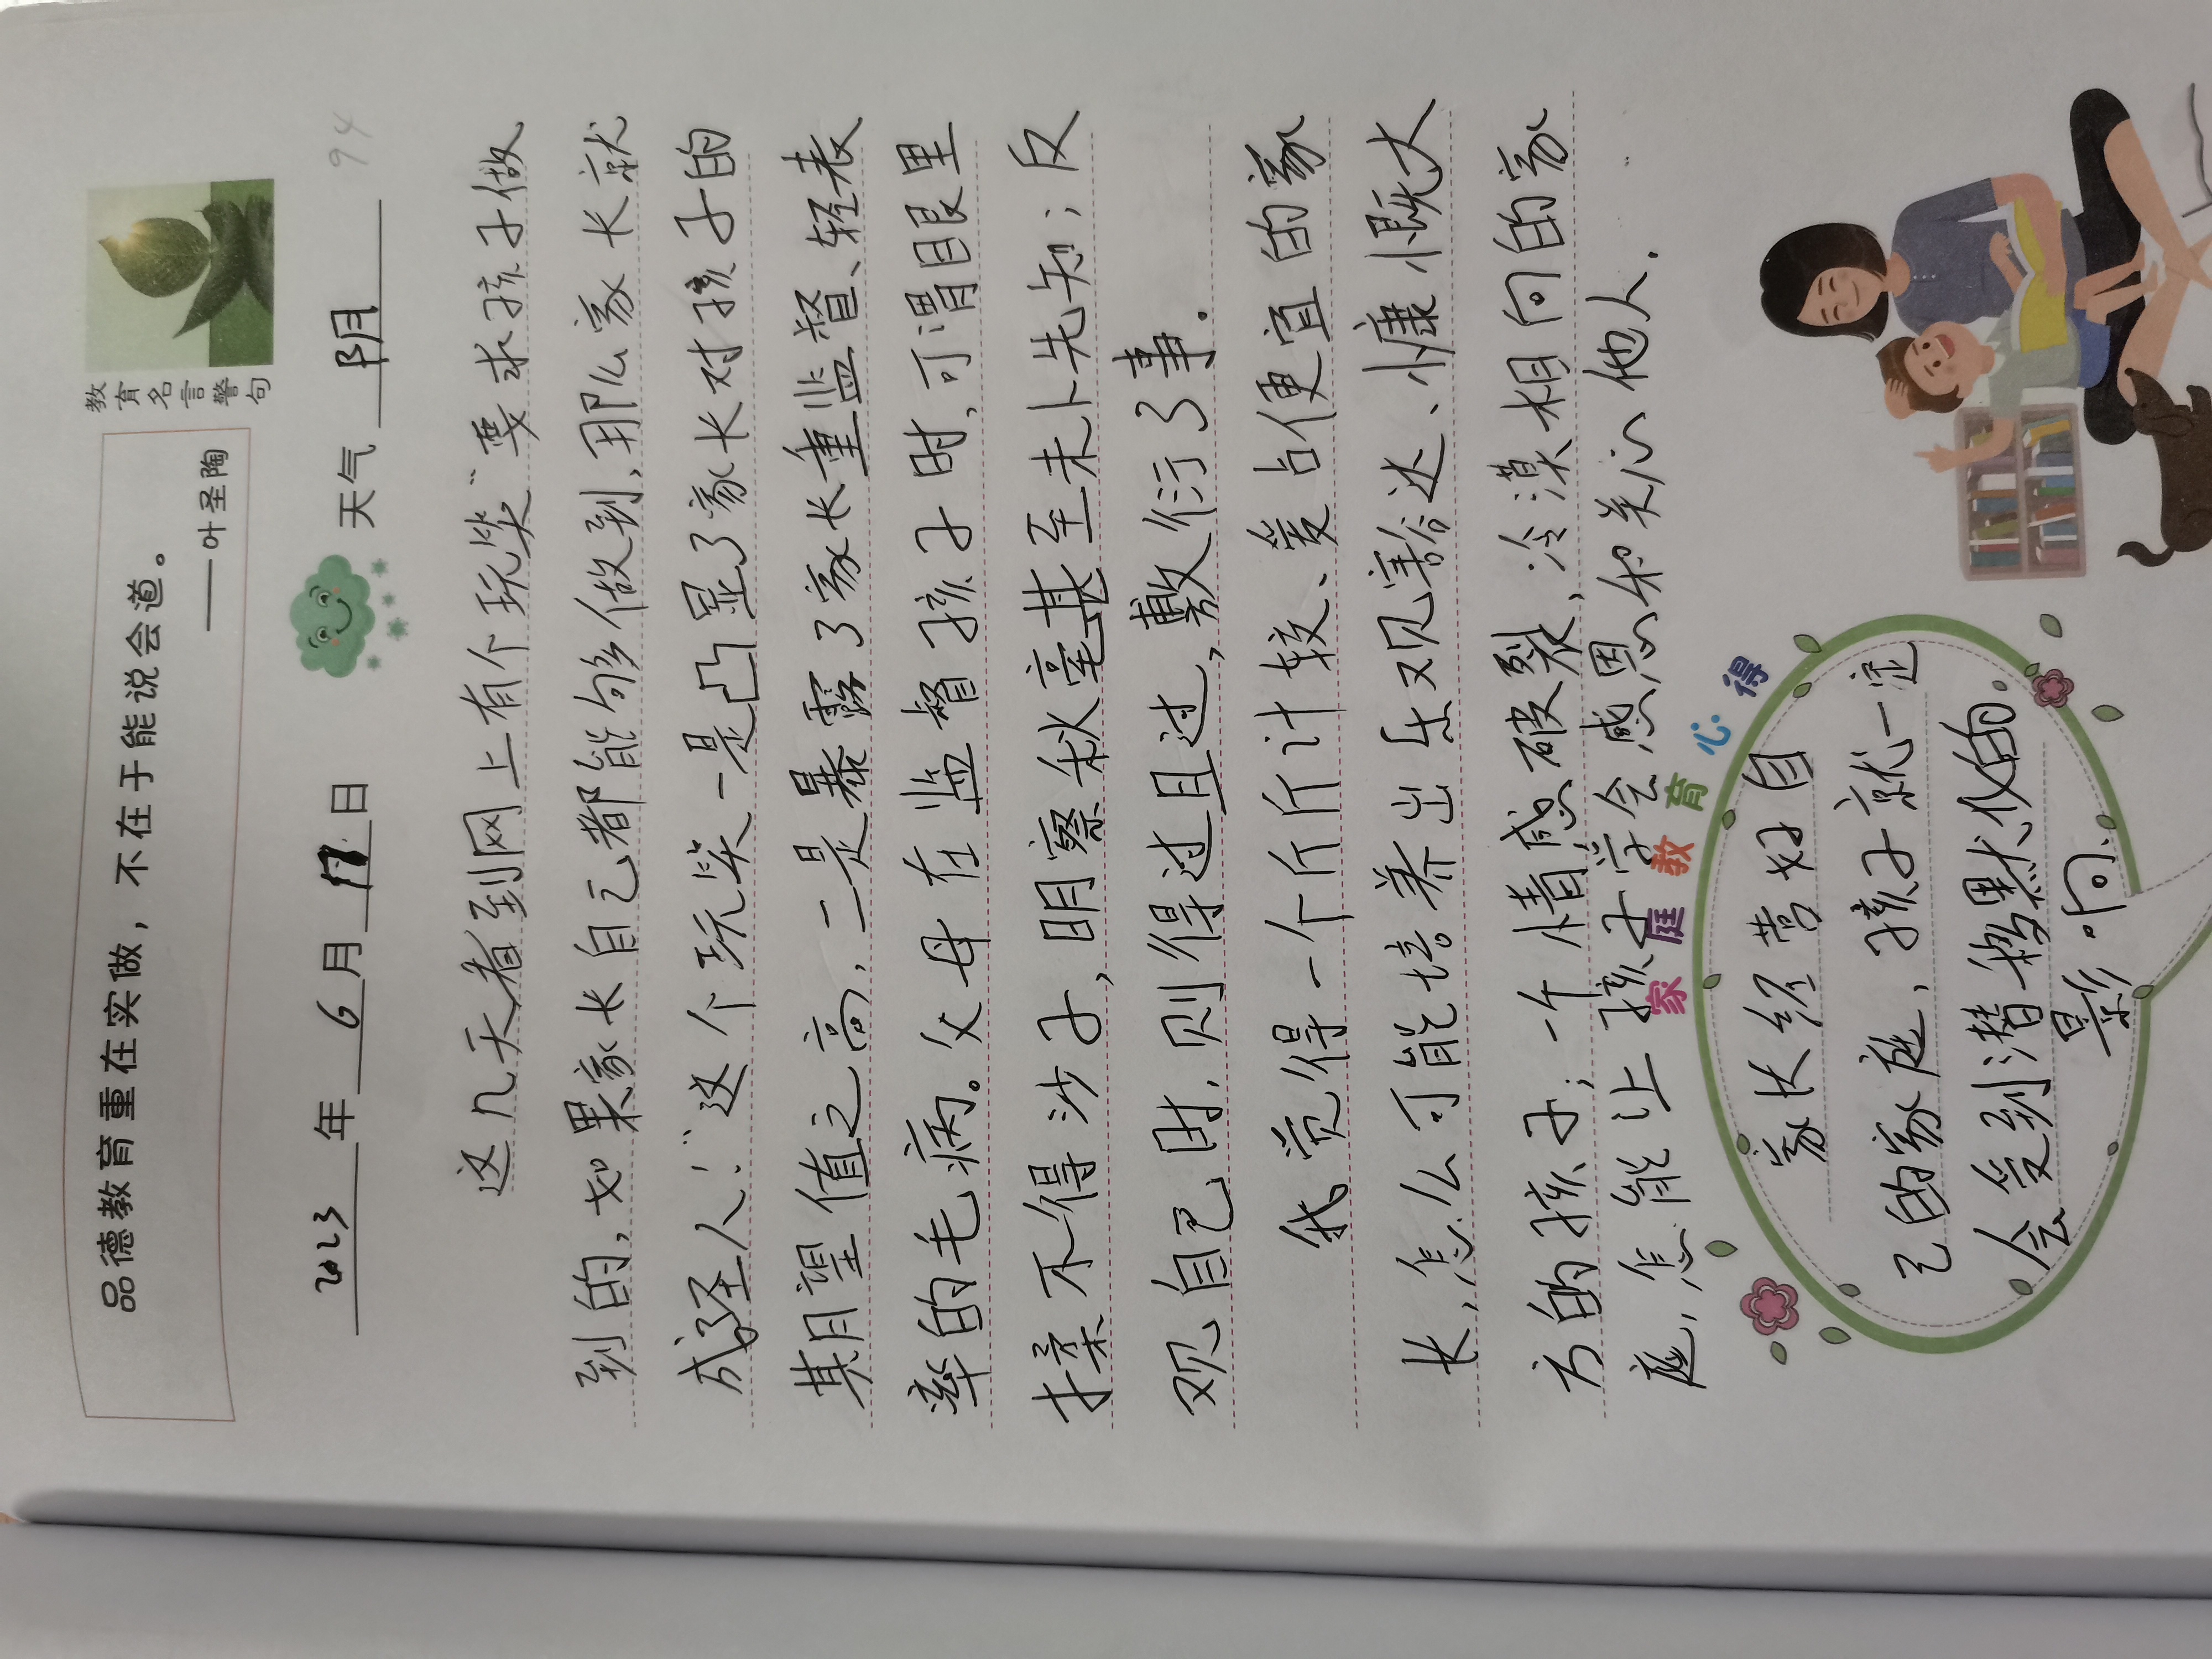 教育名言警句
品德教育重在实做，不在于能说会道。
——叶圣陶
2023年6月17日 天气 阴
94
这几天看到网上有个玩笑“要求孩子做
到的，如果家长自己都能够做到，那么家长就
成圣人！”这个玩笑一是凸显了家长对孩子的
期望值之高，二是暴露了家长重监督、轻表
率的毛病。父母在监督孩子时，可谓眼里
揉不得沙子，明察秋毫甚至未卜先知；反
观自己时，则得过且过，敷衍了事．
我觉得一个斤斤计较、爱占便宜的家
长，怎么可能培养出乐观豁达、慷慨大
方的孩子；一个情感破裂，冷漠相向的家
庭，怎能让孩子学会感恩和关心他人．
家庭教育心得
家长经营好自
己的家庭，孩子就一定
会受到潜移默化的
影响．